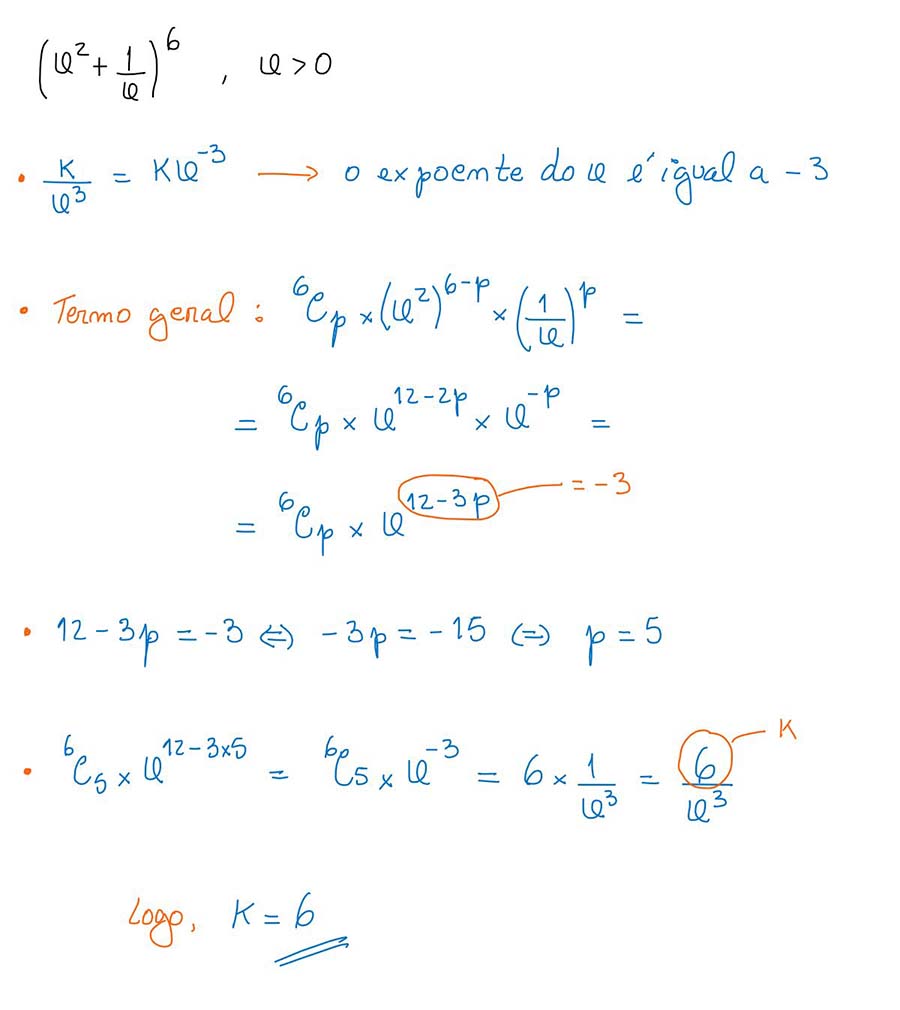 (x² + 1/x)⁶ , x > 0
• K/x³ = Kx⁻³ ⟶ o expoente do x é igual a -3
• Termo geral : ⁶Cₚ × (x²)⁶⁻ᵖ × (1/x)ᵖ =
= ⁶Cₚ × x¹²⁻²ᵖ × x⁻ᵖ =
= ⁶Cₚ × x¹²⁻³ᵖ = -3
• 12 - 3p = -3 ⇔ -3p = -15 ⇔ p = 5
• ⁶C₅ × x¹²⁻³ˣ⁵ = ⁶C₅ × x⁻³ = 6 × 1/x³ = 6/x³ K
Logo, K = 6